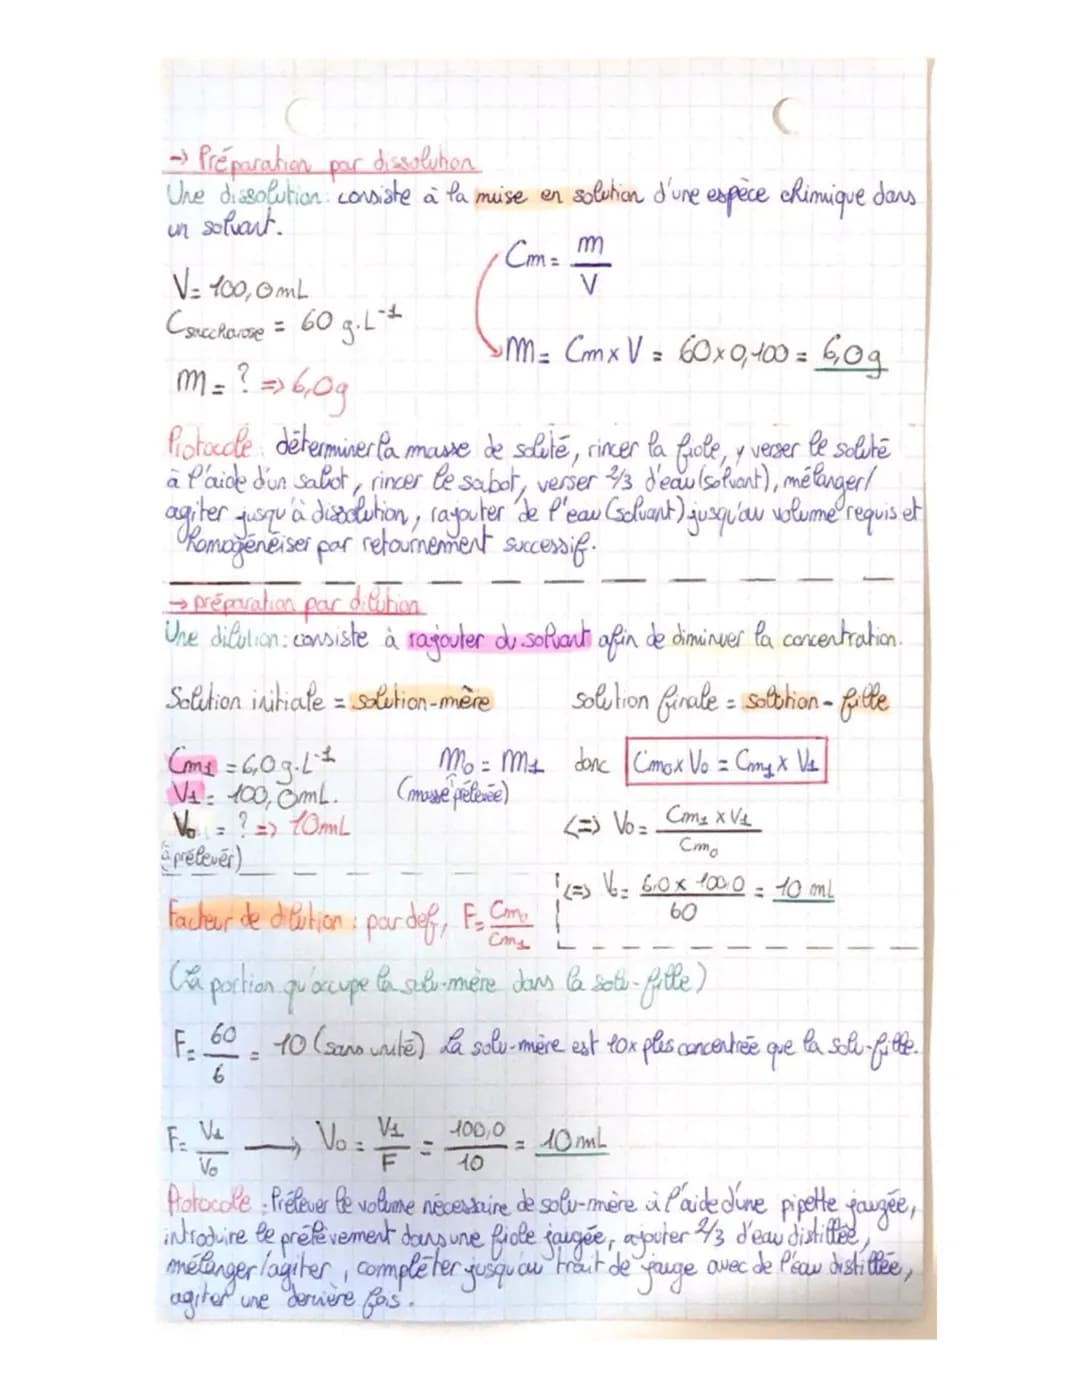 → Préparation par dissolution
Une dissolution: consiste à la muise en solution d'une espèce chimique dans
un solvant.
Cm = m/V
V= 100,0mL
Csaccharose = 60 g.L⁻¹
m= Cm x V = 60x0,100 = 6,0g
m= ? => 6,0g
Protocole: déterminer la masse de soluté, rincer la fiole, y verser le soluté
à l'aide d'un sabot, rincer le sabot, verser 2/3 d'eau (solvant), mélanger/
agiter jusqu'à dissolution, rajouter de l'eau (solvant) jusqu'au volume requis et
homogénéiser par retournement successif.
→ préparation par dilution
Une dilution: consiste à rajouter du solvant afin de diminuer la concentration.
Solution initiale = solution-mère solution finale = solution-fille
Cm1 = 6,0g.L⁻¹ m0 = m1 donc Cm0 x V0 = Cm1 x V1
V1 = 100,0mL. (masse prélevée)
V0 = ? => 10mL <=> V0 = Cm1 x V1/Cm0
à prélever)
<=> V0 = 6,0 x 100,0/60 = 10 mL
Facteur de dilution : par def, F= Cm0/Cm1
(La portion qu'occupe la solu-mère dans la solu-fille)
F= 60/6 = 10 (sans unité) La solu-mère est 10x plus concentrée que la solu-fille.
F= V1/V0 → V0 = V1/F = 100,0/10 = 10mL
Protocole : Prélever le volume nécessaire de solu-mère à l'aide d'une pipette jaugée,
introduire le prélèvement dans une fiole jaugée, ajouter 2/3 d'eau distillée,
mélanger/agiter, compléter jusqu'au trait de jauge avec de l'eau distillée,
agiter une dernière fois.